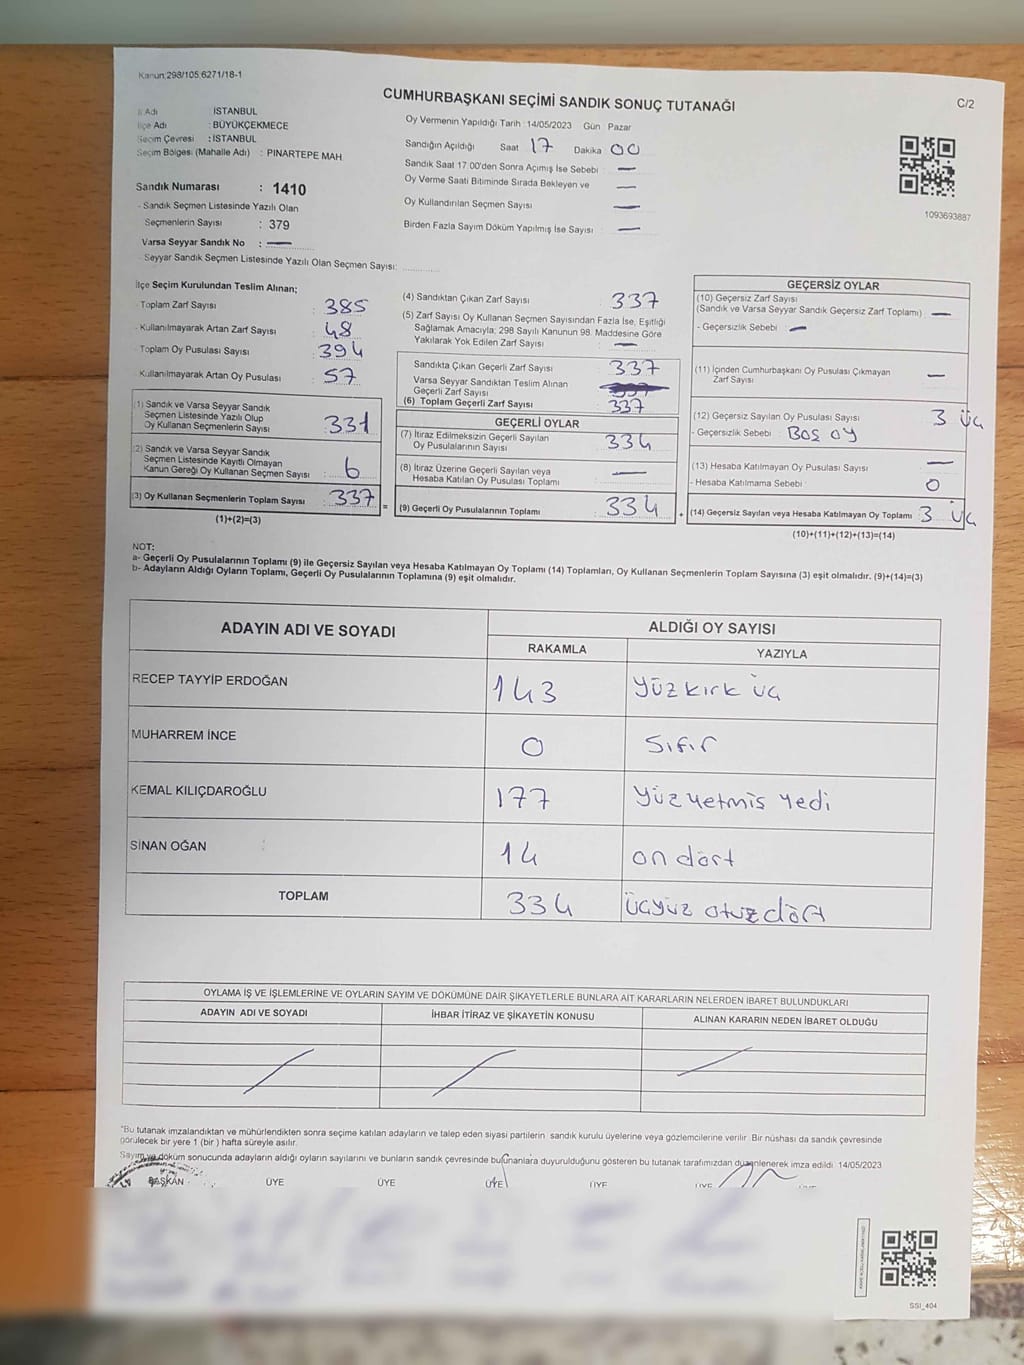 Kanun:298/105:6271/18-1
CUMHURBAŞKANI SEÇİMİ SANDIK SONUÇ TUTANAĞI
C/2
İl Adı : İSTANBUL
İlçe Adı : BÜYÜKÇEKMECE
Seçim Çevresi : İSTANBUL
Seçim Bölgesi (Mahalle Adı) : PINARTEPE MAH
Sandık Numarası : 1410
- Sandık Seçmen Listesinde Yazılı Olan
Seçmenlerin Sayısı : 379
Varsa Seyyar Sandık No : —
- Seyyar Sandık Seçmen Listesinde Yazılı Olan Seçmen Sayısı:
Oy Vermenin Yapıldığı Tarih : 14/05/2023 Gün Pazar
Sandığın Açıldığı Saat 17 Dakika 00
Sandık Saat 17.00'den Sonra Açımış İse Sebebi : —
Oy Verme Saati Bitiminde Sırada Bekleyen ve —
Oy Kullandırılan Seçmen Sayısı —
Birden Fazla Sayım Döküm Yapılmış İse Sayısı : —
1093693887
İlçe Seçim Kurulundan Teslim Alınan;
- Toplam Zarf Sayısı : 385
- Kullanılmayarak Artan Zarf Sayısı : 48
- Toplam Oy Pusulası Sayısı : 394
- Kullanılmayarak Artan Oy Pusulası : 57
(1) Sandık ve Varsa Seyyar Sandık
Seçmen Listesinde Yazılı Olup
Oy Kullanan Seçmenlerin Sayısı : 331
(2) Sandık ve Varsa Seyyar Sandık
Seçmen Listesinde Kayıtlı Olmayan
Kanun Gereği Oy Kullanan Seçmen Sayısı : 6
(3) Oy Kullanan Seçmenlerin Toplam Sayısı : 337
(1)+(2)=(3)
(4) Sandıktan Çıkan Zarf Sayısı : 337
(5) Zarf Sayısı Oy Kullanan Seçmen Sayısından Fazla İse, Eşitliği
Sağlamak Amacıyla; 298 Sayılı Kanunun 98. Maddesine Göre
Yakılarak Yok Edilen Zarf Sayısı : —
Sandıkta Çıkan Geçerli Zarf Sayısı : 337
Varsa Seyyar Sandıktan Teslim Alınan
Geçerli Zarf Sayısı
(6) Toplam Geçerli Zarf Sayısı : 337
GEÇERLİ OYLAR
(7) İtiraz Edilmeksizin Geçerli Sayılan
Oy Pusulalarının Sayısı : 334
(8) İtiraz Üzerine Geçerli Sayılan veya
Hesaba Katılan Oy Pusulası Toplamı : —
= (9) Geçerli Oy Pusulalarının Toplamı : 334
GEÇERSİZ OYLAR
(10) Geçersiz Zarf Sayısı
(Sandık ve Varsa Seyyar Sandık Geçersiz Zarf Toplamı) : —
- Geçersizlik Sebebi : —
(11) İçinden Cumhurbaşkanı Oy Pusulası Çıkmayan
Zarf Sayısı : —
(12) Geçersiz Sayılan Oy Pusulası Sayısı : 3 üç
- Geçersizlik Sebebi : Boş oy
(13) Hesaba Katılmayan Oy Pusulası Sayısı : —
- Hesaba Katılmama Sebebi : 0
+ (14) Geçersiz Sayılan veya Hesaba Katılmayan Oy Toplamı : 3 üç
(10)+(11)+(12)+(13)=(14)
NOT:
a- Geçerli Oy Pusulalarının Toplamı (9) ile Geçersiz Sayılan veya Hesaba Katılmayan Oy Toplamı (14) Toplamları, Oy Kullanan Seçmenlerin Toplam Sayısına (3) eşit olmalıdır. (9)+(14)=(3)
b- Adayların Aldığı Oyların Toplamı, Geçerli Oy Pusulalarının Toplamına (9) eşit olmalıdır.
ADAYIN ADI VE SOYADI ALDIĞI OY SAYISI
RAKAMLA YAZIYLA
RECEP TAYYİP ERDOĞAN 143 yüzkırk üç
MUHARREM İNCE 0 sıfır
KEMAL KILIÇDAROĞLU 177 yüzyetmiş yedi
SİNAN OĞAN 14 on dört
TOPLAM 334 üçyüz otuzdört
OYLAMA İŞ VE İŞLEMLERİNE VE OYLARIN SAYIM VE DÖKÜMÜNE DAİR ŞİKAYETLERLE BUNLARA AİT KARARLARIN NELERDEN İBARET BULUNDUKLARI
ADAYIN ADI VE SOYADI İHBAR İTİRAZ VE ŞİKAYETİN KONUSU ALINAN KARARIN NEDEN İBARET OLDUĞU
*Bu tutanak imzalandıktan ve mühürlendikten sonra seçime katılan adayların ve talep eden siyasi partilerin sandık kurulu üyelerine veya gözlemcilerine verilir. Bir nüshası da sandık çevresinde
görülecek bir yere 1 (bir) hafta süreyle asılır.
Sayım ve döküm sonucunda adayların aldığı oyların sayılarını ve bunların sandık çevresinde bulunanlara duyurulduğunu gösteren bu tutanak tarafımızdan düzenlenerek imza edildi. 14/05/2023
BAŞKAN ÜYE ÜYE ÜYE ÜYE ÜYE
SSI_404